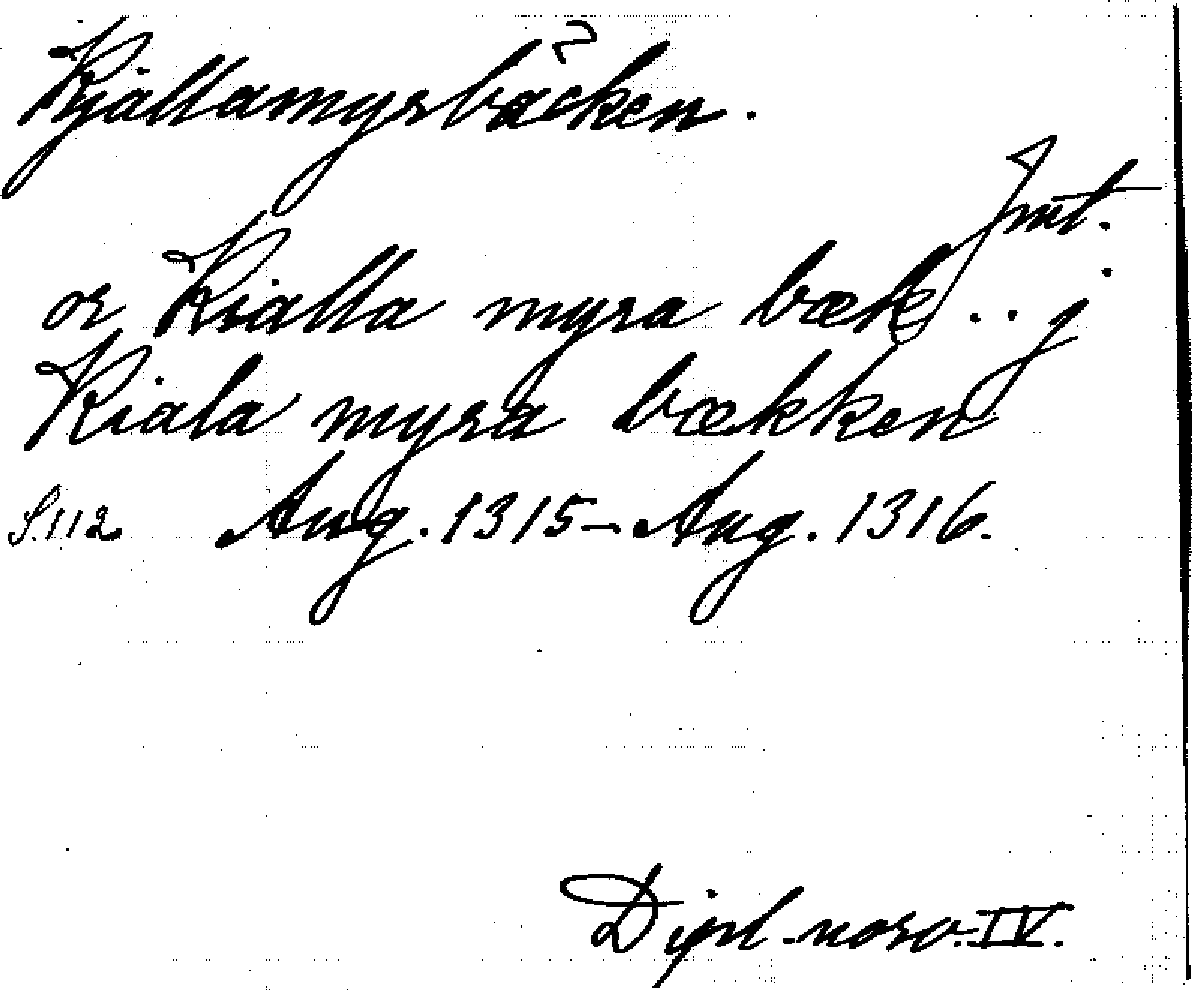 Kjällamyrbäcken. ?
Jmt.
or Kialla myra bæk . . j
Kiala myra bækken
S.112 Aug. 1315– Aug. 1316.
Dipl. norv. IV.